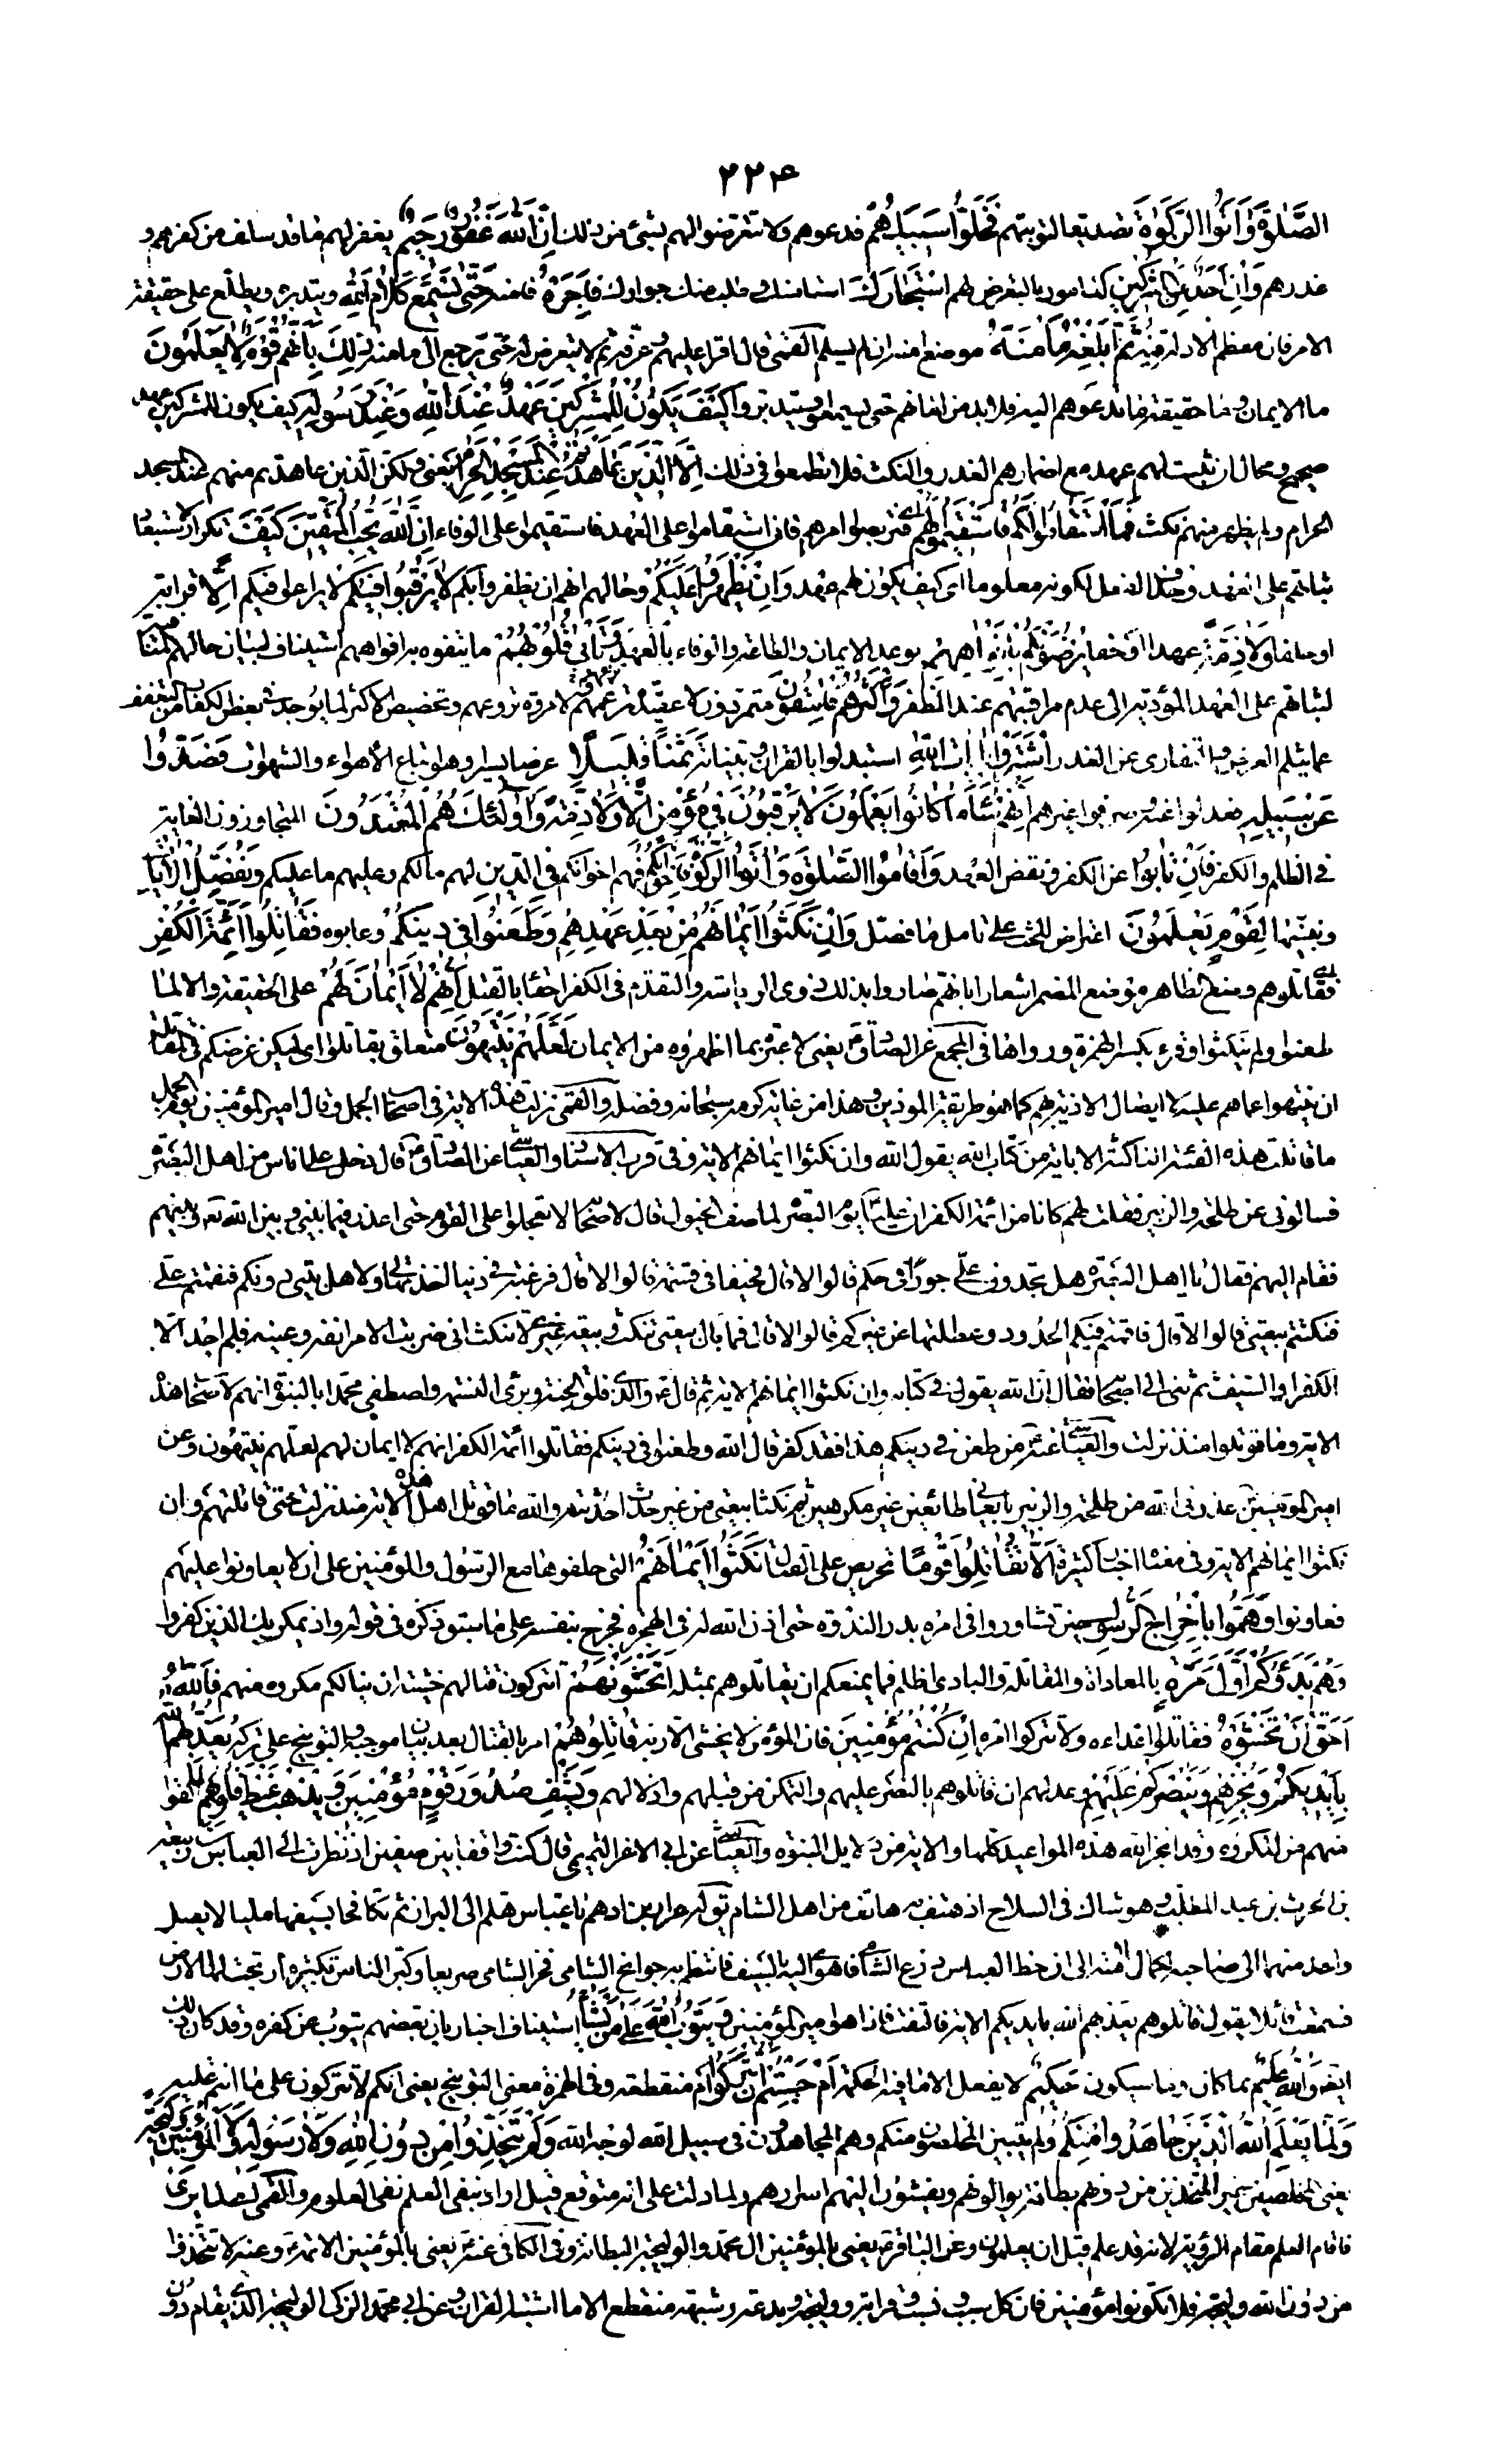 ٢٢٤
الصَّلٰوةَ وَاٰتَوُا الزَّكٰوةَ تصديقا لتوبتهم فَخَلُّوا سَبِيلَهُمْ فدعوهم ولا تتعرضوا لهم بشئ من ذلك اِنَّ اللهَ غَفُورٌ رَحِيمٌ يغفر لهم ما قد سلف من كفرهم و
غدرهم وَاِنْ اَحَدٌ مِنَ الْمُشْرِكِينَ المأمور بالتعرض لهم اسْتَجَارَكَ استأمنك وطلب منك جوارك فَاَجِرْهُ فامنه حَتّٰى يَسْمَعَ كَلَامَ اللهِ ويتدبره ويطلع على حقيقة
الامر فان معظم الادلة فيه ثُمَّ اَبْلِغْهُ مَاْمَنَهُ موضع امنه ان لم يسلم القمى قال اقرأ عليه وعرفه ثم لا تتعرض له حتى يرجع الى مامنه ذٰلِكَ بِاَنَّهُمْ قَوْمٌ لَا يَعْلَمُونَ
ما الايمان وما حقيقة ما تدعوهم اليه فلا بد من امانهم حتى يسمعوا ويتدبروا كَيْفَ يَكُونُ لِلْمُشْرِكِينَ عَهْدٌ عِنْدَ اللهِ وَعِنْدَ رَسُولِهِ كيف يكون للمشركين عهد
صحيح ومحال ان يثبت لهم عهد مع اضمارهم الغدر والنكث فلا تطمعوا فى ذلك اِلَّا الَّذِينَ عَاهَدْتُمْ عِنْدَ الْمَسْجِدِ الْحَرَامِ يعنى ولكن الذين عاهدتم منهم عند المسجد
الحرام ولم يظهر منهم نكث فَمَا اسْتَقَامُوا لَكُمْ فَاسْتَقِيمُوا لَهُمْ اى فتربصوا امرهم فان استقاموا على العهد فاستقيموا على الوفاء اِنَّ اللهَ يُحِبُّ الْمُتَّقِينَ كَيْفَ تكرار لاستبعاد
ثباتهم على العهد وحذف الفعل لكونه معلوما اى كيف يكون لهم عهد وَاِنْ يَظْهَرُوا عَلَيْكُمْ وحالهم انهم ان يظفروا بكم لَا يَرْقُبُوا فِيكُمْ لا يراعوا فيكم اِلًّا قرابة
او حلفا وَلَا ذِمَّةً عهدا او حقا يُرْضُونَكُمْ بِاَفْوَاهِهِمْ بوعد الايمان والطاعة والوفاء بالعهد وَتَاْبٰى قُلُوبُهُمْ ما يتفوه به افواههم استيناف لبيان حالهم المنافية
لثباتهم على العهد المؤدية الى عدم مراقبتهم عند الظفر وَاَكْثَرُهُمْ فَاسِقُونَ متمردون لا عقيدة تزعهم ولا مروة تردعهم وتخصيص الاكثر لما يوجد فى بعض الكفار من التعفف
عما يثلم العرض والتفادى عن الغدر اشْتَرَوْا بِاٰيَاتِ اللهِ استبدلوا بالقران وبيناته ثَمَنًا قَلِيلًا عرضا يسيرا وهو اتباع الأهواء والشهوات فَصَدُّوا
عَنْ سَبِيلِهِ فعدلوا عنه وصرفوا غيرهم اِنَّهُمْ سَاءَ مَا كَانُوا يَعْمَلُونَ لَا يَرْقُبُونَ فِى مُؤْمِنٍ اِلًّا وَلَا ذِمَّةً وَاُولٰئِكَ هُمُ الْمُعْتَدُونَ المتجاوزون الغاية
فى الظلم والكفر فَاِنْ تَابُوا عن الكفر ونقض العهد وَاَقَامُوا الصَّلٰوةَ وَاٰتَوُا الزَّكٰوةَ فَاِخْوَانُكُمْ فهم اخوانكم فى الدين لهم ما لكم وعليهم ما عليكم وَنُفَصِّلُ الْاٰيَاتِ
ونبينها لِقَوْمٍ يَعْلَمُونَ اعتراض للحث على تامل ما فصل وَاِنْ نَكَثُوا اَيْمَانَهُمْ مِنْ بَعْدِ عَهْدِهِمْ وَطَعَنُوا فِى دِينِكُمْ وعابوه فَقَاتِلُوا اَئِمَّةَ الْكُفْرِ
اى فقاتلوهم وضع الظاهر موضع المضمر اشعارا بانهم صاروا بذلك ذوى الرياسة والتقدم فى الكفر احقاء بالقتل اِنَّهُمْ لَا اَيْمَانَ لَهُمْ على الحقيقة والا لما
طعنوا ولم ينكثوا وقرئ بكسر الهمزة ورواها فى المجمع عن الصادق يعنى لا عبرة بما اظهروه من الايمان لَعَلَّهُمْ يَنْتَهُونَ متعلق بقاتلوا اى ليكن غرضكم فى المقاتلة
ان ينتهوا عما هم عليه لا ايصال الاذية بهم كما هو طريقة الموذين وهذا من غاية كرمه سبحانه وفضله والقمى نزلت هذه الاية فى اصحاب الجمل وقال امير المؤمنين يوم الجمل
ما قاتلت هذه الفئة الناكثة الا باية من كتاب الله يقول الله وان نكثوا ايمانهم الاية وفى قرب الاسناد والعياشى عن الصادق قال دخل على اناس من اهل البصرة
فسالونى عن طلحة والزبير فقلت لهم كانا من ائمة الكفر ان عليا يوم البصرة لما صف الخيول قال لاصحابه لا تعجلوا على القوم حتى اعذر فيما بينى وبين الله وبينهم
فقام اليهم فقال يا اهل البصرة هل تجدون على جورا فى حكم قالوا لا قال فحيفا فى قسم قالوا لا قال فرغبة فى دنيا اخذتها لى ولاهل بيتى دونكم فنقمتم على
فنكثتم بيعتى قالوا لا قال فاقمت فيكم الحدود وعطلتها عن غيركم قالوا لا قال فما بال بيعتى تنكث وبيعة غيرى لا تنكث انى ضربت الامر انفه وعينه فلم اجد الا
الكفر او السيف ثم ثنى الى اصحابه فقال ان الله يقول فى كتابه وان نكثوا ايمانهم الاية ثم قال والذى فلق الحبة وبرئ النسمة واصطفى محمدا بالنبوة انهم لاصحاب هذه
الاية وما قوتلوا منذ نزلت والعياشى عنه من طعن فى دينكم هذا فقد كفر قال الله وطعنوا فى دينكم فقاتلوا ائمة الكفر انهم لا ايمان لهم لعلهم ينتهون وعن
امير المؤمنين عذرنى الله من طلحة والزبير بايعانى طائعين غير مكرهين ثم نكثا بيعتى من غير حدث احدثته والله ما قوتل اهل هذه الاية منذ نزلت حتى قاتلتهم وان
نكثوا ايمانهم الاية وفى معناه اخبار كثيرة اَلَا تُقَاتِلُونَ قَوْمًا تحريص على القتال نَكَثُوا اَيْمَانَهُمْ التى حلفوها مع الرسول والمؤمنين على ان لا يعاونوا عليهم
فعاونوا وَهَمُّوا بِاِخْرَاجِ الرَّسُولِ حين تشاوروا فى امره بدار الندوة حتى اذن الله له فى الهجرة فخرج بنفسه على ما سبق ذكره فى قوله واذ يمكر بك الذين كفروا
وَهُمْ بَدَؤُكُمْ اَوَّلَ مَرَّةٍ بالمعاداة والمقاتلة والبادى اظلم فما يمنعكم ان تقاتلوهم بمثله اَتَخْشَوْنَهُمْ اتتركون قتالهم خشية ان ينالكم مكروه منهم فَاللهُ
اَحَقُّ اَنْ تَخْشَوْهُ فقاتلوا اعداءه ولا تتركوا امره اِنْ كُنْتُمْ مُؤْمِنِينَ فان المؤمن لا يخشى الا ربه قَاتِلُوهُمْ امر بالقتال بعد بيان موجبه والتوبيخ على تركه يُعَذِّبْهُمُ اللهُ
بِاَيْدِيكُمْ وَيُخْزِهِمْ وَيَنْصُرْكُمْ عَلَيْهِمْ وعد لهم ان قاتلوهم بالنصر عليهم والتمكن من قتلهم واذلالهم وَيَشْفِ صُدُورَ قَوْمٍ مُؤْمِنِينَ وَيُذْهِبْ غَيْظَ قُلُوبِهِمْ لما لقوا
منهم من المكروه وقد انجز الله هذه المواعيد كلها والاية من دلايل النبوة والعياشى عن ابى الاغر التميمى قال كنت واقفا بين صفين اذ نظرت الى العباس بن ربيعة
بن الحرث بن عبد المطلب وهو شاك فى السلاح اذ هتف به هاتف من اهل الشام يا عباس هلم الى البراز ثم تكافحا بسيفهما مليا لا يصل
واحد منهما الى صاحبه لكمال لامته الى ان لحظ العباس درع الشامى فاهوى اليه بالسيف فانتظم به جوانح الشامى فخر الشامى صريعا وكبر الناس تكبيرة ارتجت لها الارض
فسمعت قائلا يقول قاتلوهم يعذبهم الله بايديكم الاية فالتفت فاذا هو امير المؤمنين وَيَتُوبُ اللهُ عَلٰى مَنْ يَشَاءُ استيناف اخبار بان بعضهم يتوب عن كفره وقد كان ذلك
ايضا وَاللهُ عَلِيمٌ بما كان وما سيكون حَكِيمٌ لا يفعل الا ما فيه الحكمة اَمْ حَسِبْتُمْ اَنْ تُتْرَكُوا ام منقطعة وفى الهمزة معنى التوبيخ يعنى انكم لا تتركون على ما انتم عليه
وَلَمَّا يَعْلَمِ اللهُ الَّذِينَ جَاهَدُوا مِنْكُمْ ولم يتبين المخلصون منكم وهم المجاهدون فى سبيل الله لوجه الله وَلَمْ يَتَّخِذُوا مِنْ دُونِ اللهِ وَلَا رَسُولِهِ وَلَا الْمُؤْمِنِينَ وَلِيجَةً
يعنى المخلصين غير المتخذين من دونهم بطانة يوالونهم ويفشون اليهم اسرارهم ولما دلت على انه متوقع قيل اراد بنفى العلم نفى المعلوم والقمى اى لما ير
فاقام العلم مقام الرؤية لانه قد علم قبل ان يعلموا وعن الباقر يعنى بالمؤمنين ال محمد والوليجة البطانة وفى الكافى عنه يعنى بالمؤمنين الائمة وعنه لا تتخذوا
من دون الله وليجة فلا تكونوا مؤمنين فان كل سبب ونسب وقرابة ووليجة وبدعة وشبهة منقطع الا ما اثبته القران وعن ابى محمد الزكى الوليجة الذى يقام دون